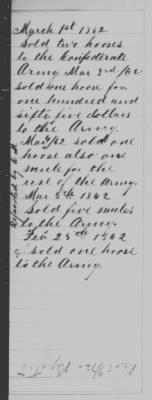 March 1st 1862
Sold two horses
to the Confederate
Army Mar 3rd /62
Sold one horse for
one hundred and
sixty five dollars
to the Army.
Mar /62 sold one
horse also one
mule for the
use of the Army.
Mar 5th 1862
Sold five mules
to the Army.
Feb 25th 1862
sold one horse
to the Army.